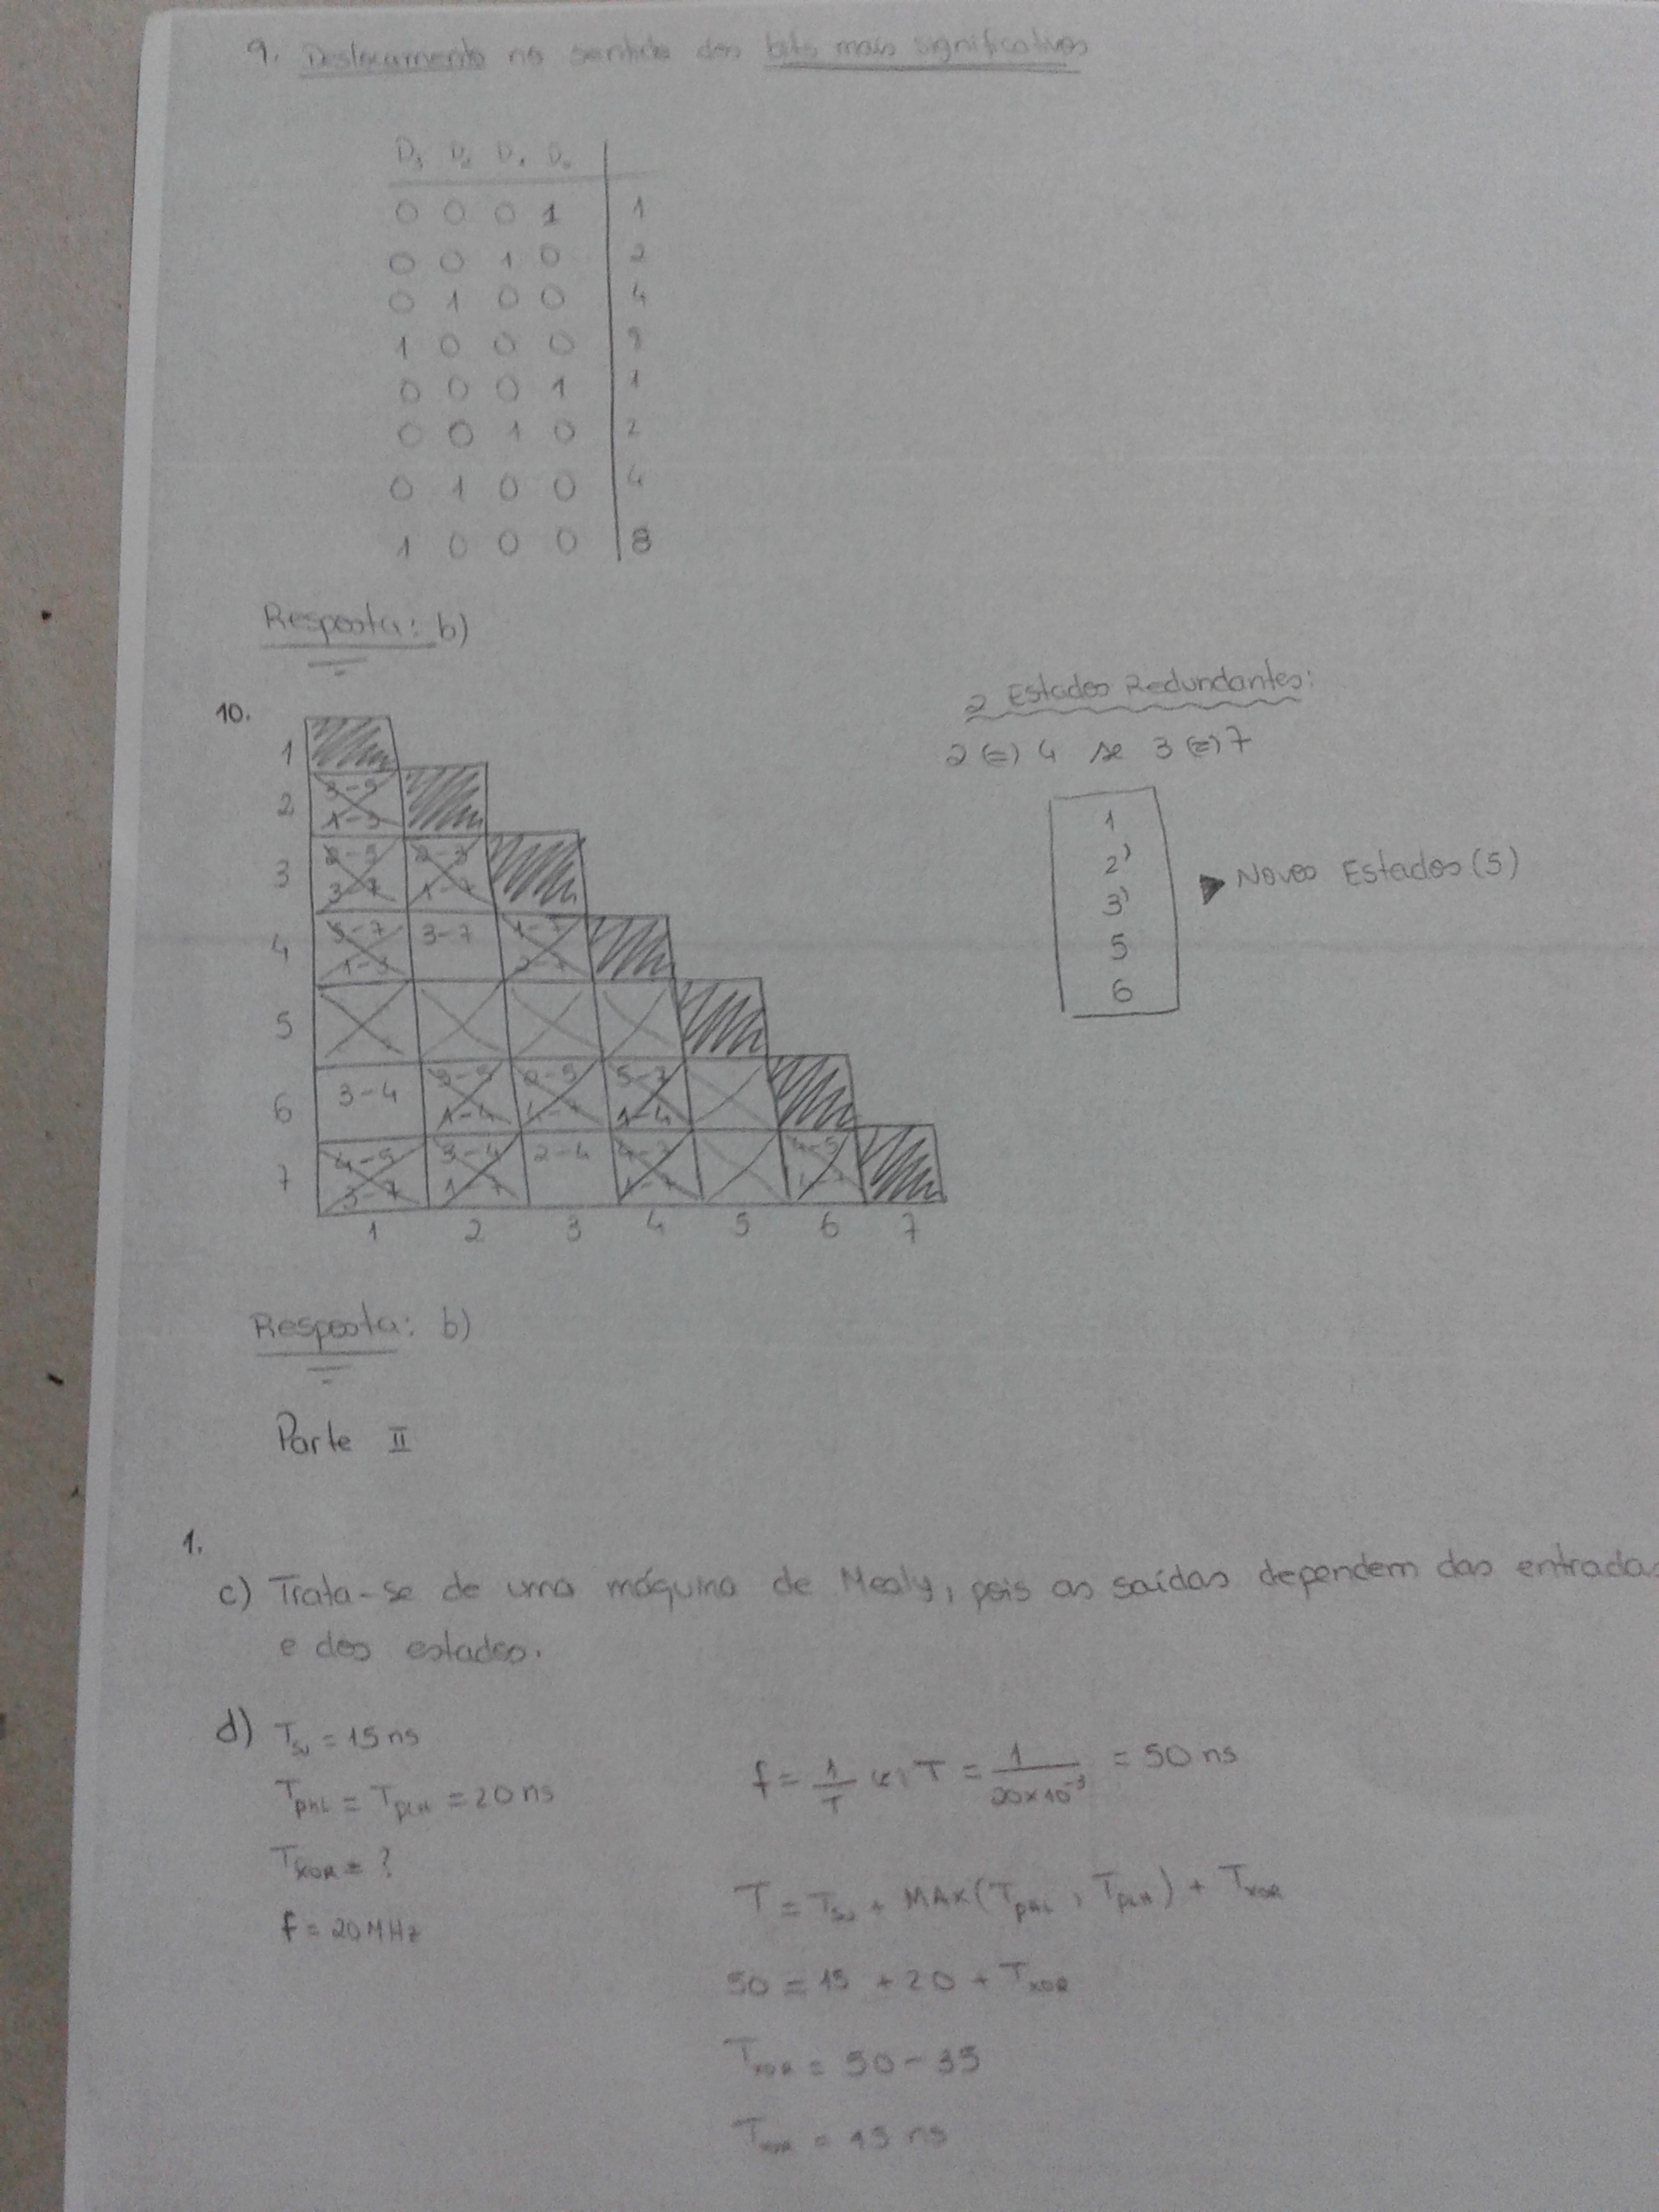 9. Deslocamento no sentido dos bits mais significativos
D₃ D₂ D₁ D₀
0 0 0 1 | 1
0 0 1 0 | 2
0 1 0 0 | 4
1 0 0 0 |
0 0 0 1 | 1
0 0 1 0 | 2
0 1 0 0 | 4
1 0 0 0 | 8
Resposta: b)
10.
1
2 3-5 1-3
3 2-5 3-7
4 5-7 1-3 3-7 1-7 2-7
5
6 3-4 3-5 1-4 2-5 5-7 1-4
7 4-5 3-7 3-4 1-7 2-4 4-5
1 2 3 4 5 6 7
2 Estados Redundantes:
2 (=) 4 se 3 (=) 7
1
2'
3'
5
6
Novos Estados (5)
Resposta: b)
Parte II
1.
c) Trata-se de uma máquina de Mealy, pois as saídas dependem das entradas
e dos estados.
d) Tsu = 15 ns
TpHL = TpLH = 20 ns
TXOR = ?
f = 20 MHz
f = 1/T (=) T = 1/(20×10⁻³) = 50 ns
T = Tsu + MAX(TpHL, TpLH) + TXOR
50 = 15 + 20 + TXOR
TXOR = 50 - 35
TXOR = 15 ns